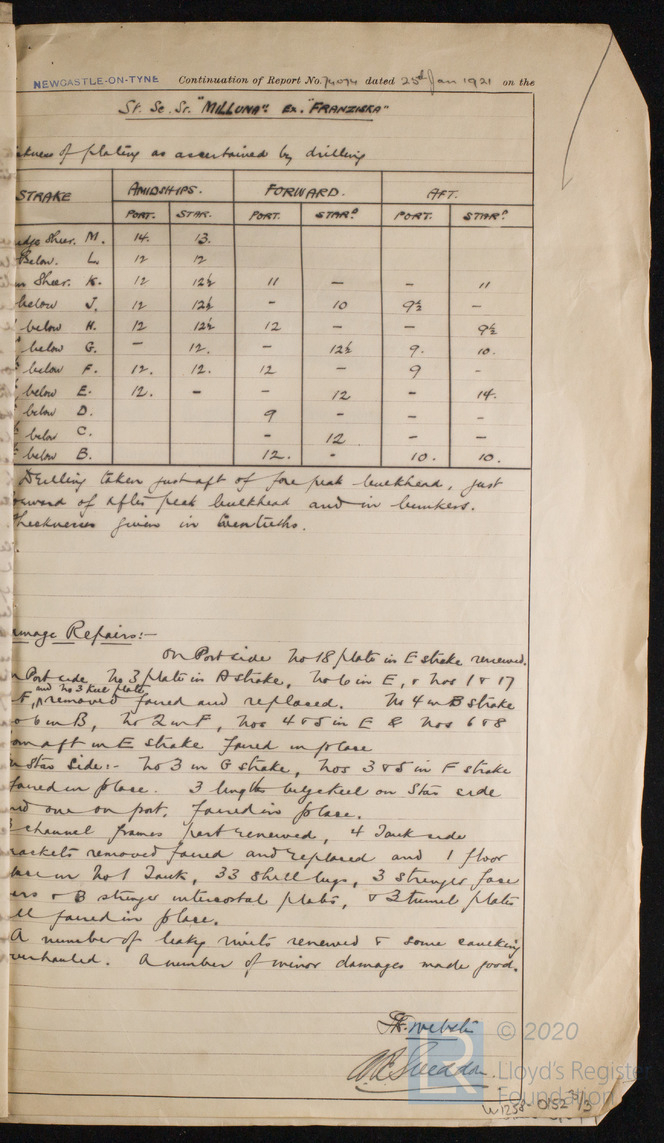 NEWCASTLE-ON-TYNE Continuation of Report No. 74074 dated 25th Jan 1921 on the
St. Sc. Sr. "MILLUNA" Ex. "FRANZISKA"
ckness of plating as ascertained by drilling
STRAKE AMIDSHIPS. FORWARD. AFT.
PORT. STAR. PORT. STARD PORT. STARD
Sheer. M. 14. 13.
Below. L. 12 12
Sheer. K. 12 12½ 11 – – 11
below J. 12 12½ - 10 9½ –
below H. 12 12½ 12 – – 9½
below G. – 12. – 12½ 9. 10.
below F. 12. 12. 12 – 9 -
below E. 12. - – 12 - 14.
below D. 9 - - -
below C. - 12 - -
below B. 12. - 10. 10.
Drilling taken just aft of fore peak bulkhead, just
orward of after peak bulkhead and in bunkers.
Thicknesses given in twentieths.
amage Repairs:-
On Port side No 18 plate in E strake renewed.
n Port side No 3 plate in A strake, No 6 in E, & Nos 1 & 17
and No 3 keel plate
F, removed faired and replaced. No 4 in B strake
o 6 in B, No 2 in F, Nos 4 & 5 in E & Nos 6 & 8
om aft in E strake faired in place
n Star side:- No 3 in G strake, Nos 3 & 5 in F strake
faired in place. 3 lengths bilge keel on Star side
nd one on port, faired in place.
channel frames part renewed, 4 Tank side
rackets removed faired and replaced and 1 floor
in No 1 Tank, 33 Shell lugs, 3 stringer face
ars & B stringer intercostal plates, & 3 tunnel plates
ll faired in place.
A number of leaky rivets renewed & some caulking
verhauled. A number of minor damages made good.
Webster
Sneddon.
LR
© 2020
Lloyd's Register
Foundation
W1258-0152 3/3